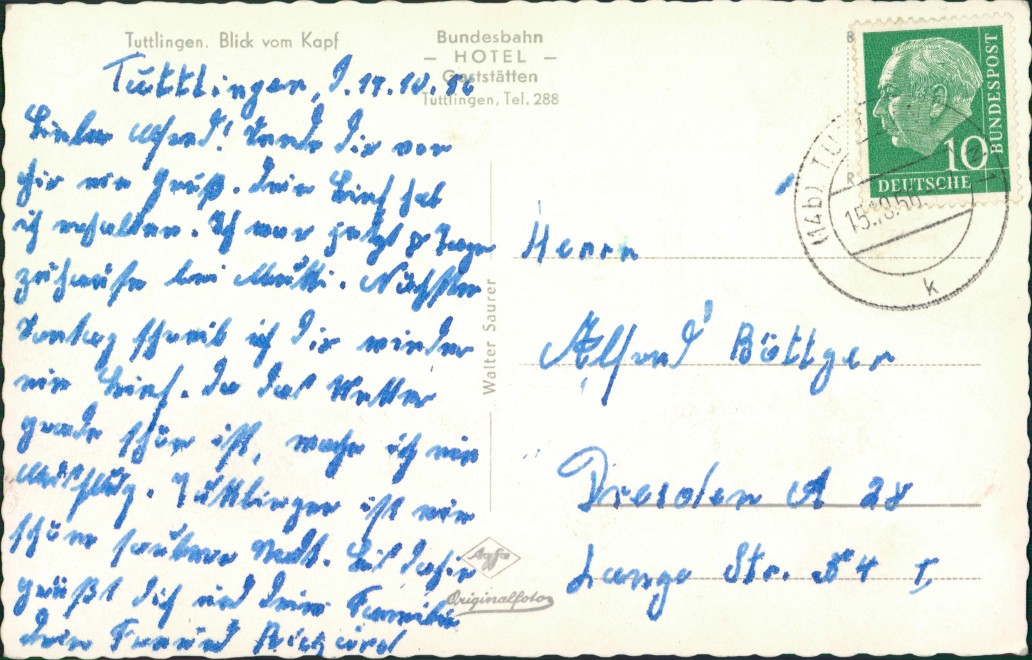 Tuttlingen. Blick vom Kapf
Bundesbahn
— HOTEL —
Gaststätten
Tuttlingen, Tel. 288
Tutttlingen, d. 14.10.56
Lieber Alfred! Sende dir von
hir ein Gruß. dein Brief hab
ich erhalten. Ich war jetzt 8 Tage
zuhause bei Mutti. Nächsten
Sontag schreib ich dir wieder
ein Brief. da das Wetter
grade schön ist, mache ich ein
Ausflug. Tuttlingen ist eine
schöne saubere Stadt. Bis dahin
grüßt dich und deine Familie
dein Freund Richard
Walter Saurer
Agfa
Originalfoto
Herrn
Alfred Böttger
Dresden A 28
Lange Str. 54 I
BUNDESPOST
10
DEUTSCHE
(14b) TU
15.10.56
k